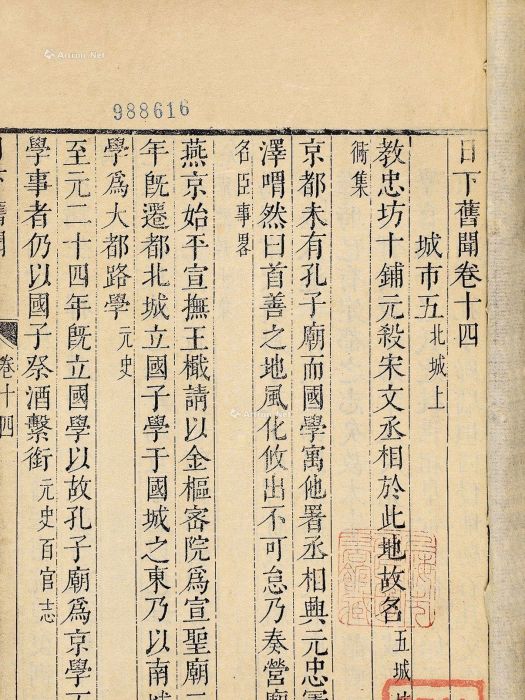 Artron.Net
988616
日下舊聞卷十四
城市五 北城上
教忠坊十鋪元殺宋文丞相於此地故名 五城坊
衚集
京都未有孔子廟而國學寓他署丞相興元忠憲
澤喟然曰首善之地風化攸出不可怠乃奏營廟
名臣事畧
燕京始平宣撫王檝請以金樞密院爲宣聖廟
年旣遷都北城立國子學于國城之東乃以南城
學爲大都路學 元史
至元二十四年旣立國學以故孔子廟爲京學
學事者仍以國子祭酒繫銜 元史百官志
卷十四